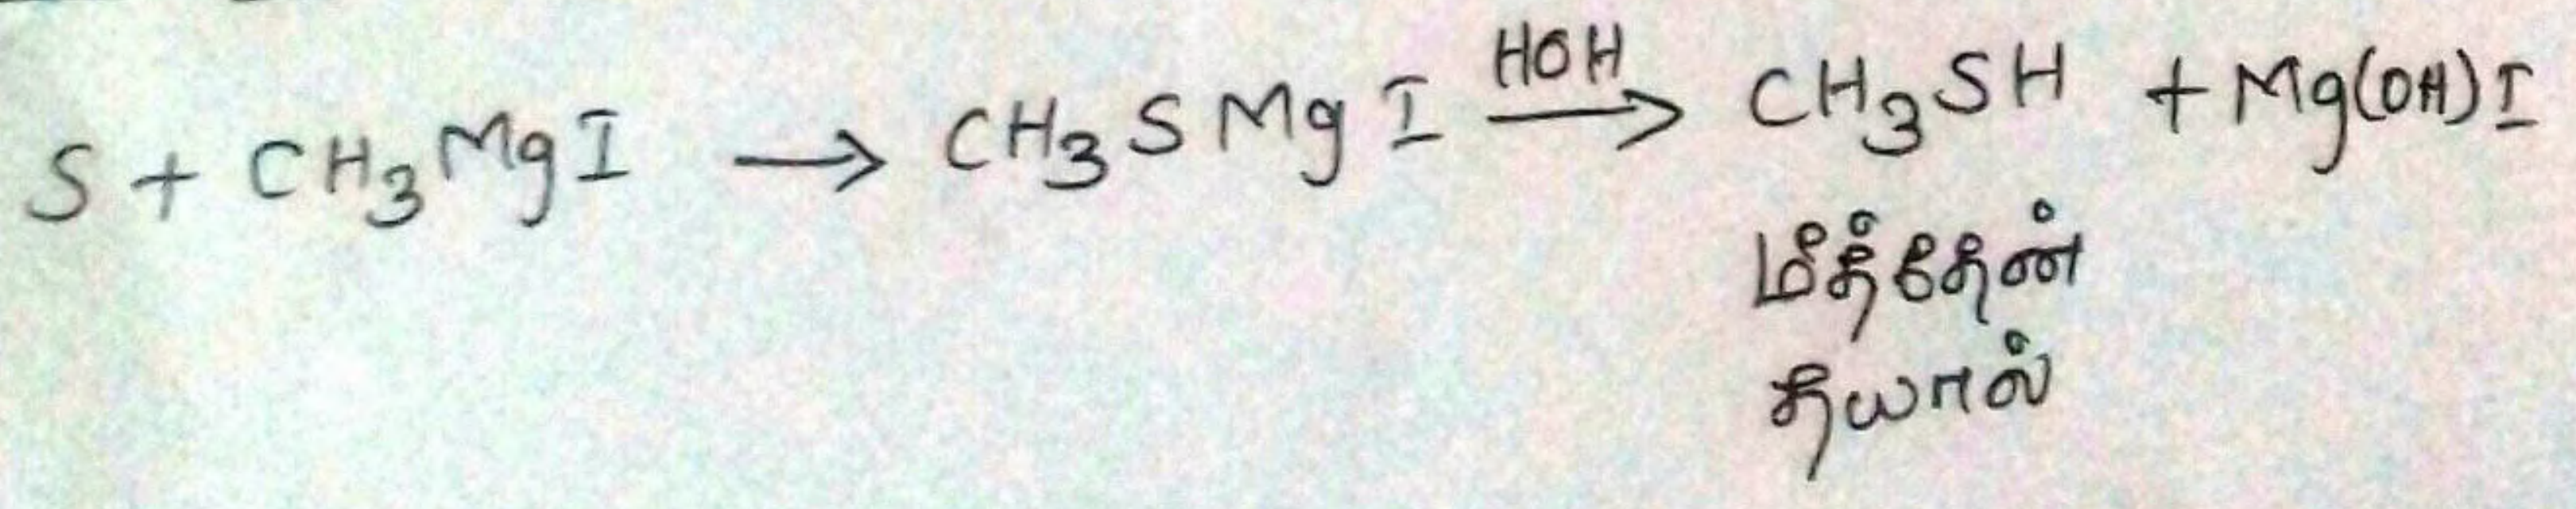 S + CH3MgI → CH3SMgI HOH→ CH3SH + Mg(OH)I
மீத்தேன்
தயால்